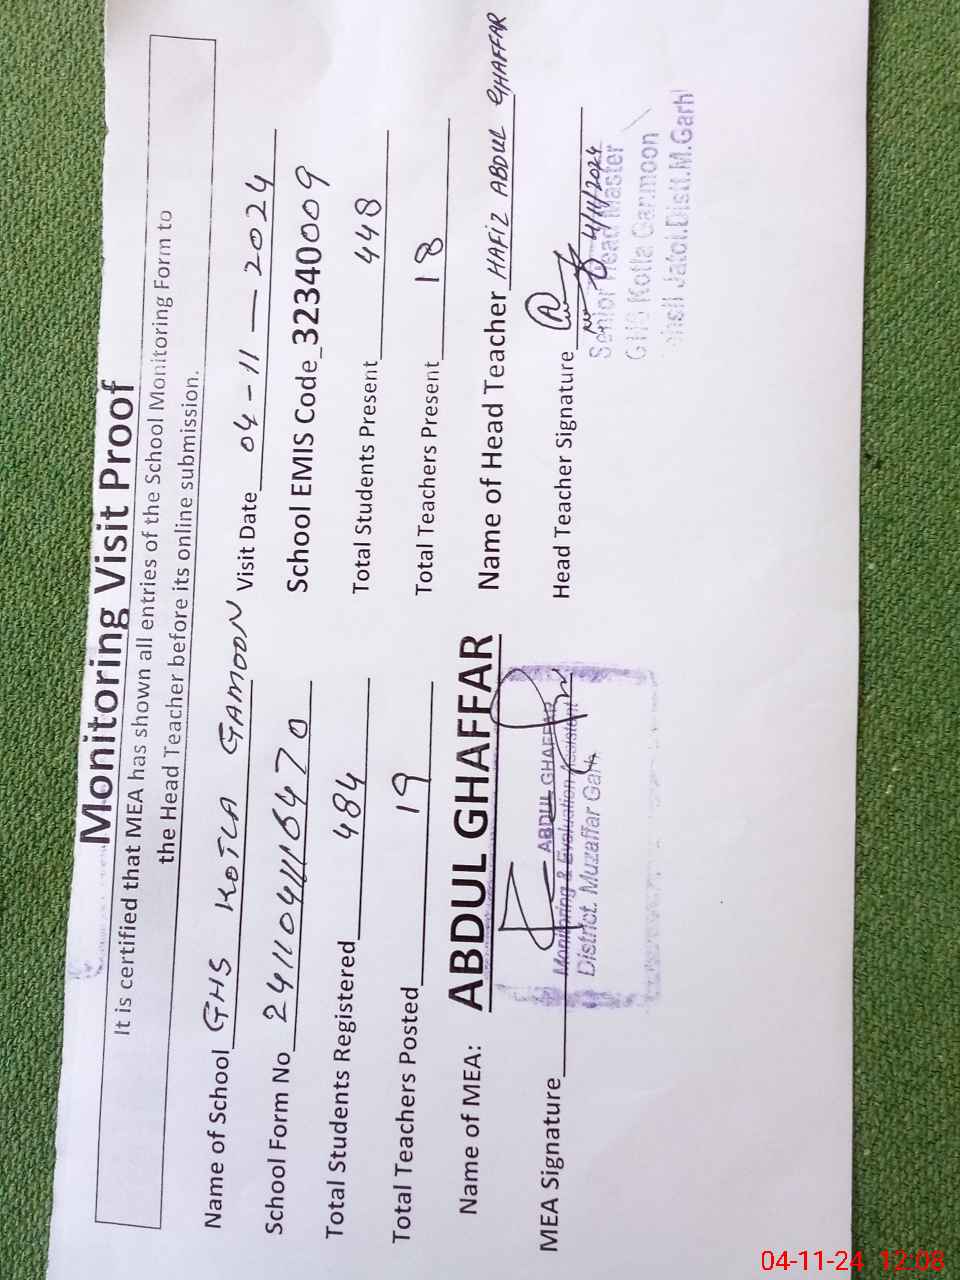 Monitoring Visit Proof
It is certified that MEA has shown all entries of the School Monitoring Form to
the Head Teacher before its online submission.
Name of School GHS KOTLA GAMOON Visit Date 04-11-2024
School Form No School EMIS Code 32340009
Total Students Registered 484 Total Students Present 448
Total Teachers Posted 19 Total Teachers Present 18
Name of MEA: ABDUL GHAFFAR Name of Head Teacher HAFIZ ABDUL GHAFFAR
MEA Signature Head Teacher Signature
4/11/2024
ABDUL GHAFFAR
Monitoring & Evaluation Assistant
District. Muzaffar Garh
Senior Head Master
Kotla Gammoon
Jatoi.Distt.M.Garh
04-11-24 12:08